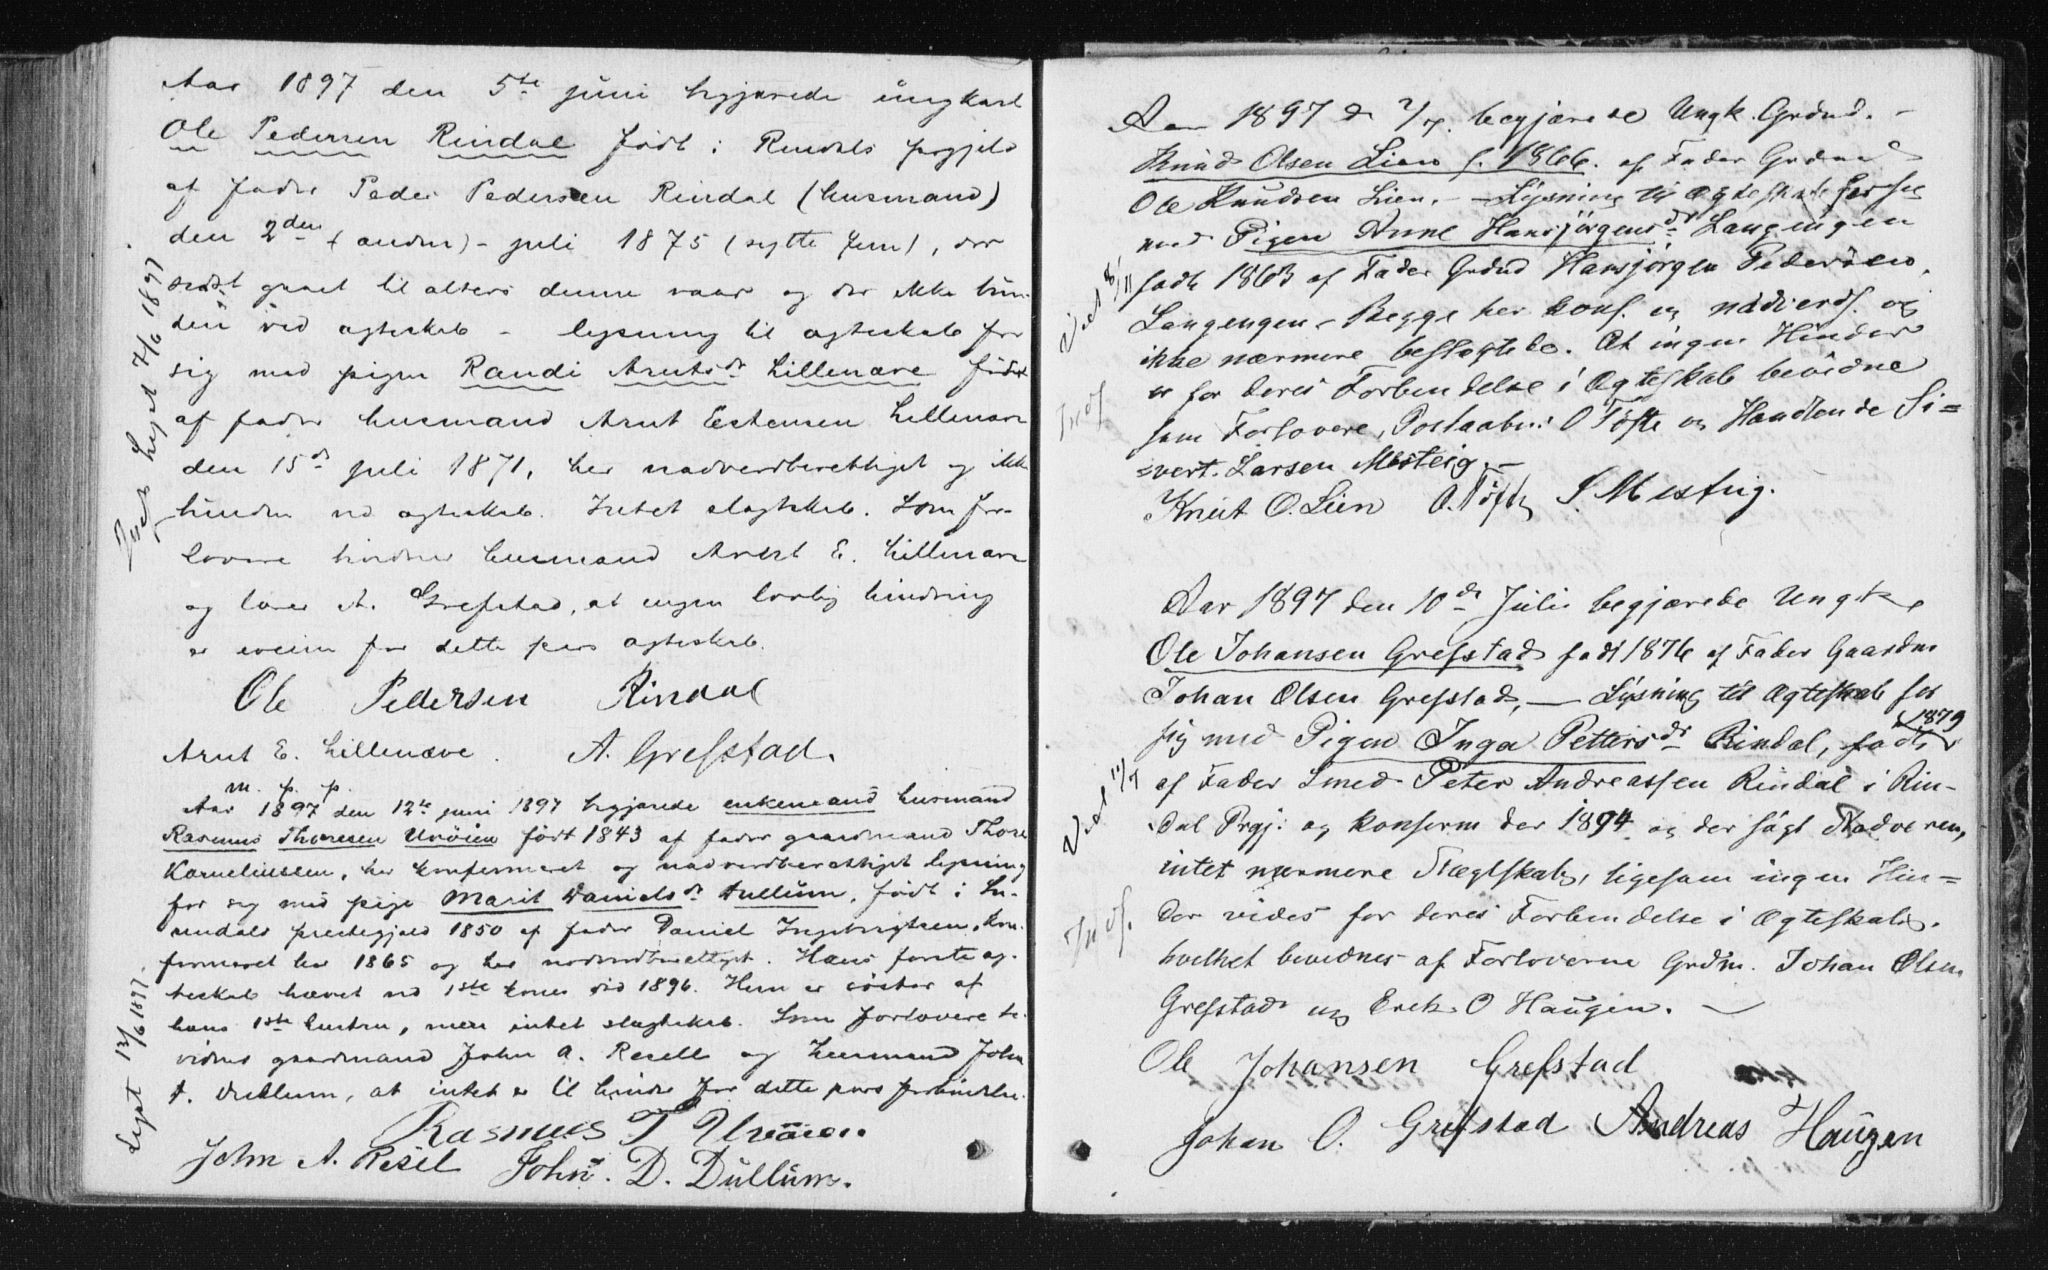 Aar 1897 den 5te juni begjærede ungkarl
Ole Pedersen Rindal født i Rindals prgjeld
af fader Peder Pedersen Rindal (husmand)
den 2den (anden) - juli 1875 (sytti fem), der
sidst gaaet til alters denne vaar og der ikke bun-
den ved ægteskab - lysning til ægteskab for
sig med pigen Randi Arntsdr Lillenæve født
af fader husmand Arnt Estensen Lillenæve
den 15de juli 1871, her nadverdberettiget og ikke
bunden ved ægteskab. Intet slægtskab. Som for-
lovere husmand Arnt E. Lillenæve
og lærer A. Grefstad, at ingen lovlig hindring
er iveien for dette pars ægteskab.
Ole Pedersen Rindal
Arnt E. Lillenæve. A. Grefstad.
m. p. p.
Aar 1897 den 12te juni 1897 begjærede enkemand husmand
Rasmus Thoresen Uvøien født 1843 af fader gaardmand Thore
Korneliussen, her konfirmeret og nadverdberettiget lysning
for sig med pige Marit Danielsdr Dullum, født i Su-
rendals prestegjeld 1850 af fader Daniel Ingebrigtsen, kon-
firmeret her 1865 og her nadverdberettiget. Hans første æg-
teskab hævet ved 1ste kones død 1896. Hun er søster af
hans 1ste hustru, men intet slægtskab. Som forlovere be-
vidner gaardmand John A. Resell og husmand John
D. Dullum, at intet er til hinder for dette pars forbindelse.
Rasmus T Uvøien.
John A. Resell John. D. Dullum.
Lyst 7/6 1897
Lyst 13/6 1897.
Aar 1897 d 2/7. begjærede Ungk. Grdmd. -
Knud Olsen Lien f. 1866. af Fader Grdmd
Ole Knudsen Lien, - Lysning til Ægteskab for sig
med Pigen Anne Hansjörgensdr Langengen
født 1863 af Fader Grdmd Hansjörgen Pedersen
Langengen - Begge her konf. og nadverdf. og
ikke nærmere beslægtede. At ingen Hinder
er for deres Forbindelse i Ægteskab bevidne
som Forlovere, Postaabn: O Tøfte og Handlende Si=
=vert. Larsen Mesteig. -
Knut O. Lien O. Tøfte S. Mesteig.
Aar 1897 den 10de Juli begjærede Ungk.
Ole Johansen Grefstad født 1876 af Fader Gaardm
Johan Olsen Grefstad, - Lysning til Ægteskab for
sig med Pigen Inga Pettersdr Rindal, født 1879
af Fader Smed Peter Andreassen Rindal i Rin-
dal Prgj: og konfirm der 1894 og der søgt Nadveren,
intet nærmere Slægtskab, ligesom ingen Hin=
der vides for deres Forbindelse i Ægteskab.
hvilket bevidnes af Forloverne Grdm. Johan Olsen
Grefstad og Erek O Haugen. -
Ole Johansen Grefstad
Johan O. Grefstad Andreas Haugen